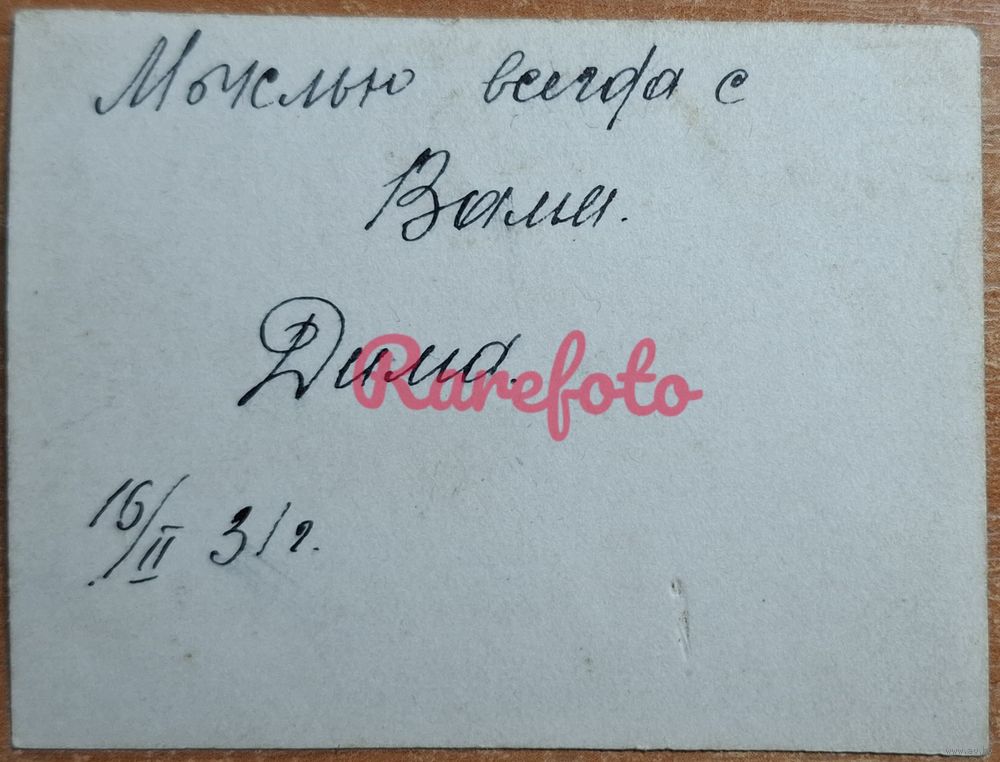 Мыслью всегда с
Вами.
Дима.
Rarefoto
16/II 31 г.